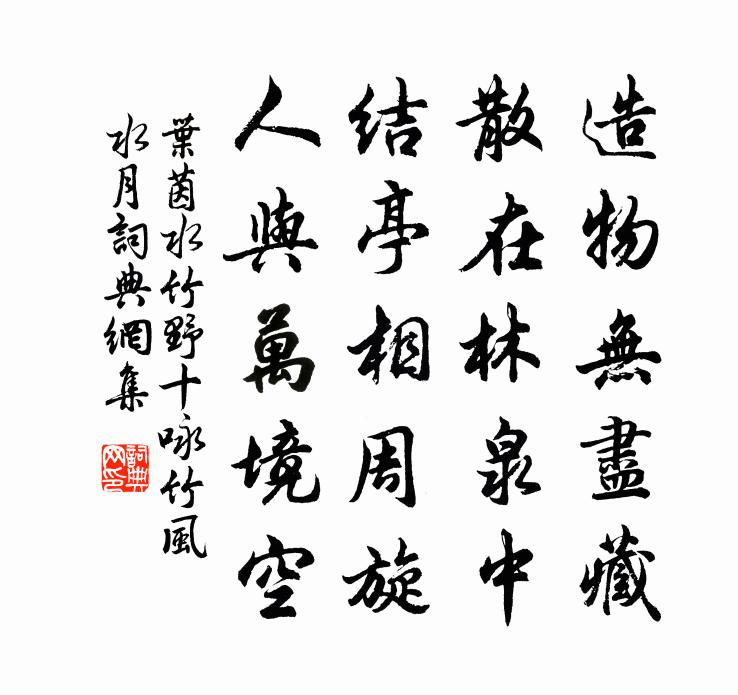 造物無盡藏
散在林泉中
結亭相周旋
人與萬境空
葉茵水竹野十咏竹風
水月詞典網集
詞典網印